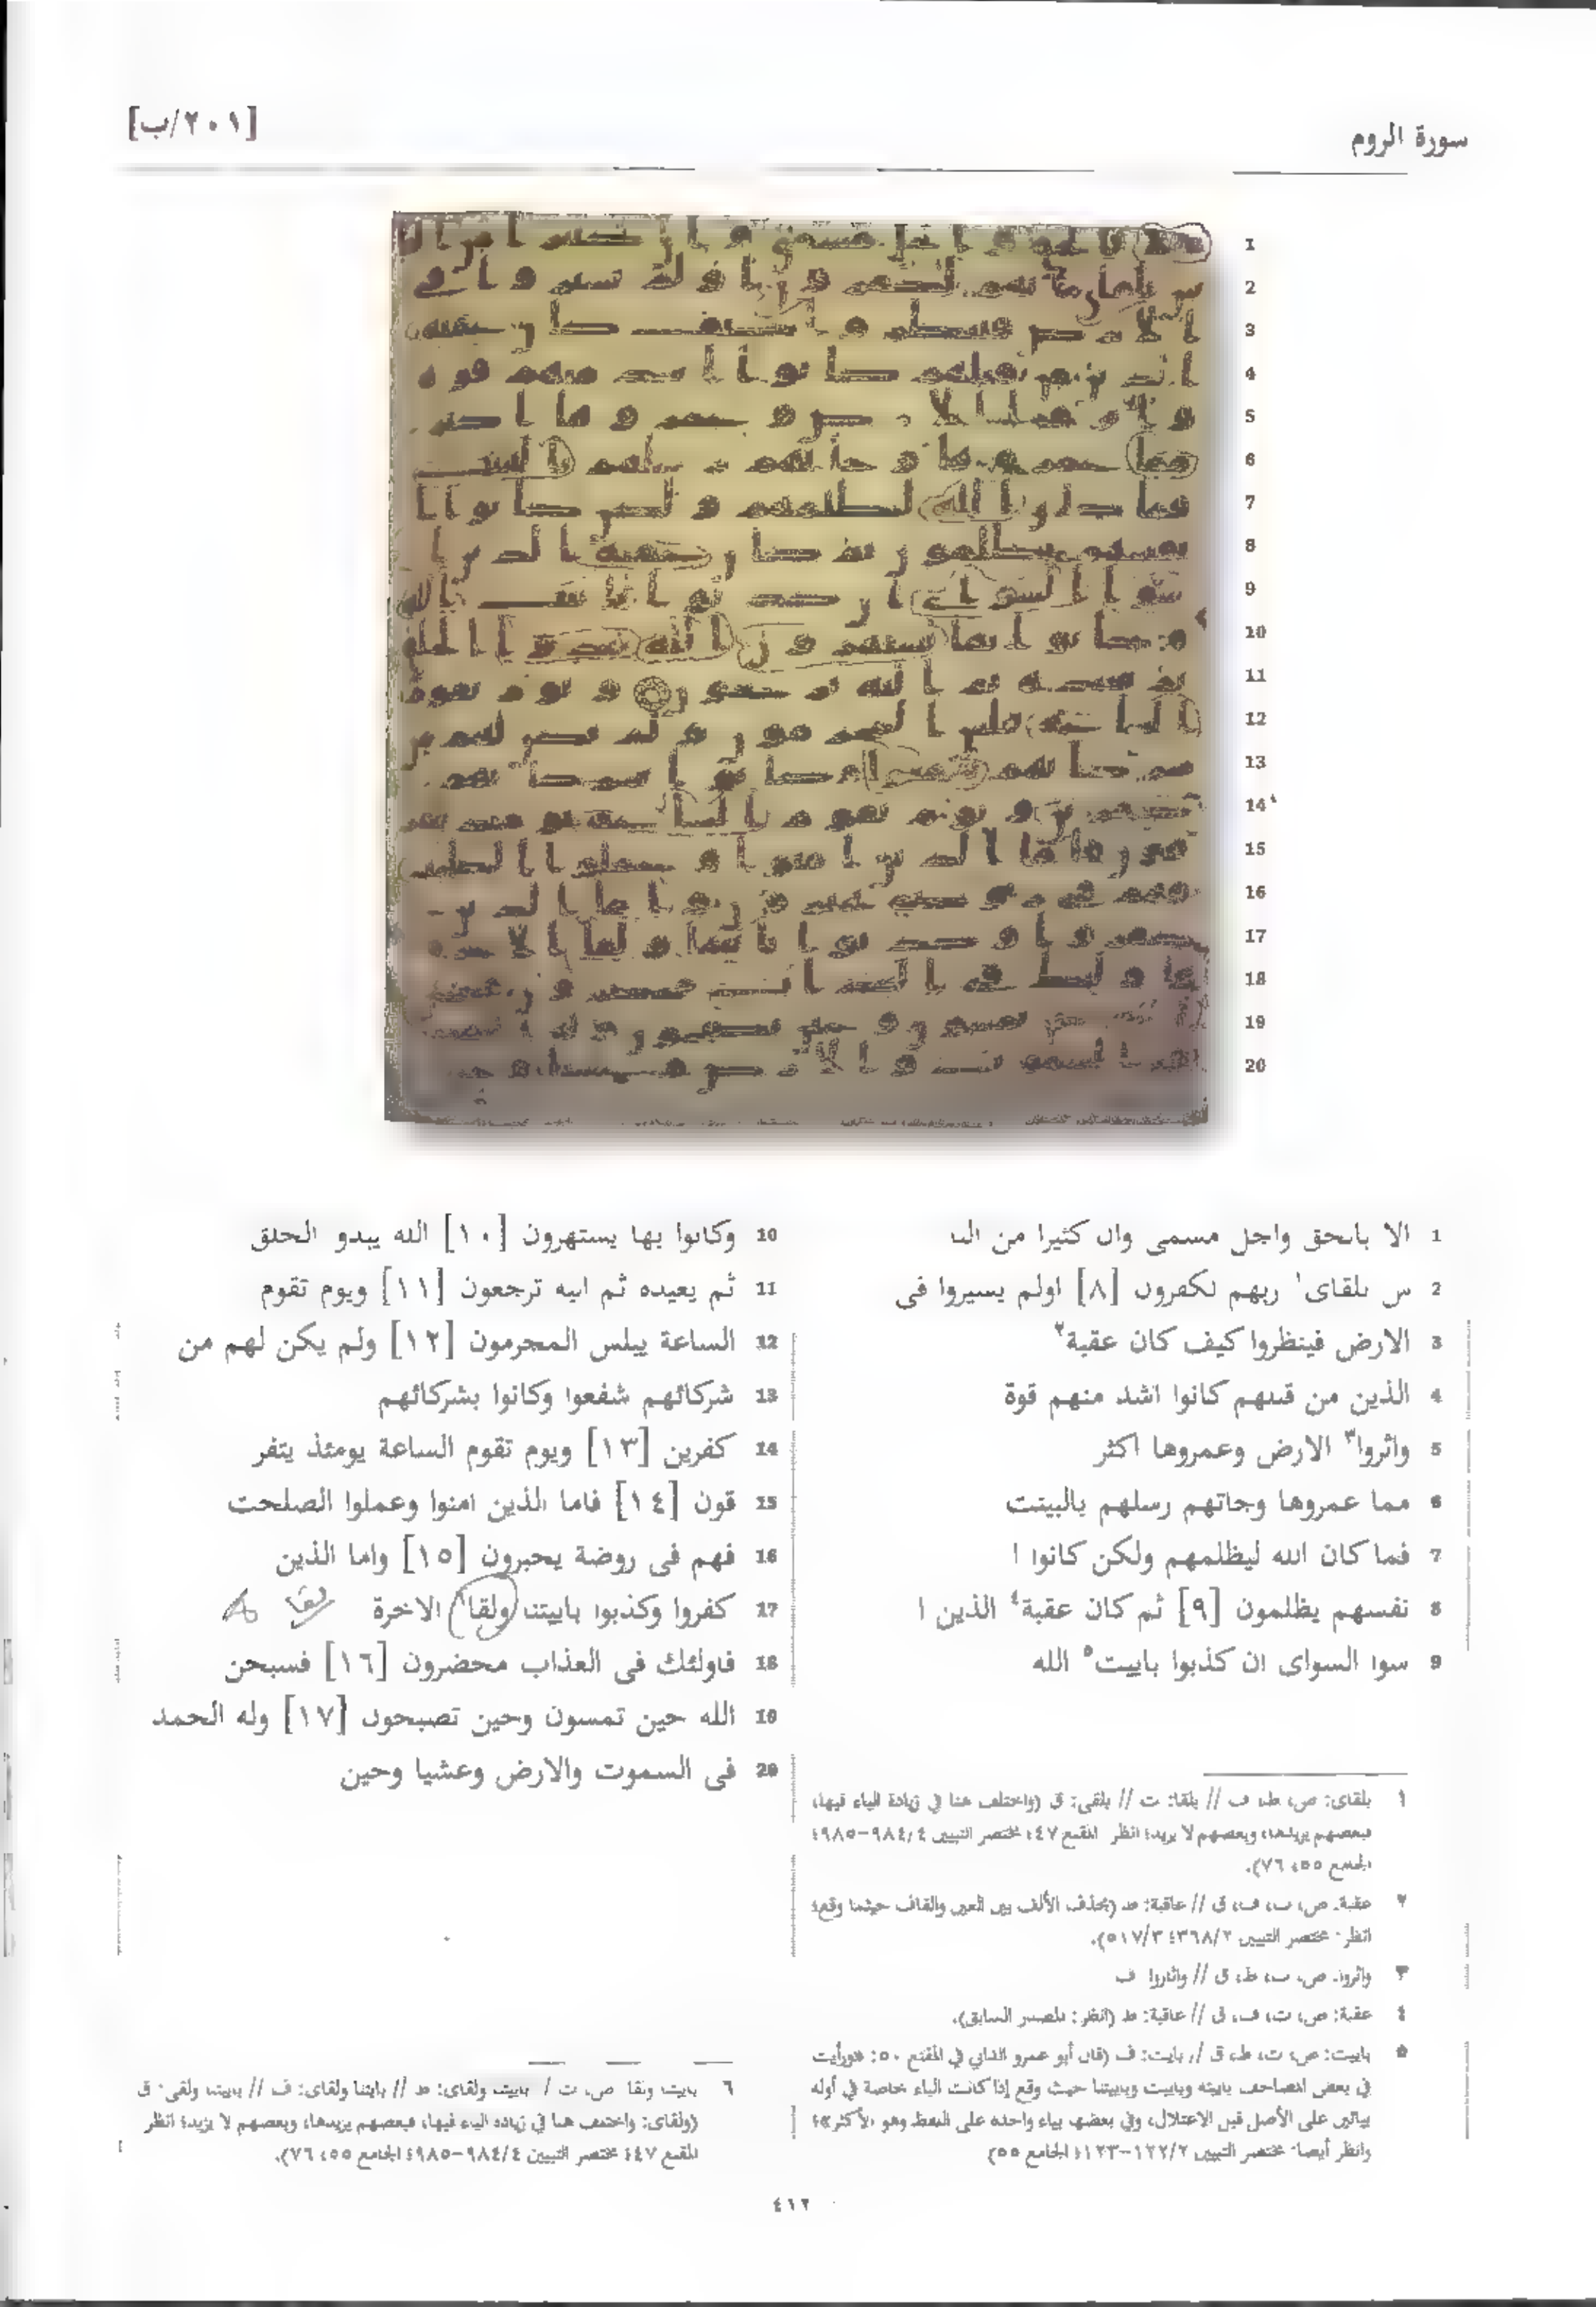 سورة الروم
[٢٠١/ب]
1 الا بالحق واجل مسمى وان كثيرا من النا
2 س بلقاى١ ربهم لكفرون [٨] اولم يسيروا فى
3 الارض فينظروا كيف كان عقبة٢
4 الذين من قبلهم كانوا اشد منهم قوة
5 واثروا٣ الارض وعمروها اكثر
6 مما عمروها وجاتهم رسلهم بالبينت
7 فما كان الله ليظلمهم ولكن كانوا ا
8 نفسهم يظلمون [٩] ثم كان عقبة٤ الذين ا
9 سوا السواى ان كذبوا باييت٥ الله
10 وكانوا بها يستهزون [١٠] الله يبدو الخلق
11 ثم يعيده ثم اليه ترجعون [١١] ويوم تقوم
12 الساعة يبلس المجرمون [١٢] ولم يكن لهم من
13 شركائهم شفعوا وكانوا بشركائهم
14 كفرين [١٣] ويوم تقوم الساعة يومئذ يتفر
15 قون [١٤] فاما الذين امنوا وعملوا الصلحت
16 فهم فى روضة يحبرون [١٥] واما الذين
17 كفروا وكذبوا باييتنا ولقا٦ الاخرة
18 فاولئك فى العذاب محضرون [١٦] فسبحن
19 الله حين تمسون وحين تصبحون [١٧] وله الحمد
20 فى السموت والارض وعشيا وحين
١ بلقاى: ص، ط، ف // بلقا: ت // بلقى: ق (واختلف هنا في زيادة الياء فيها،
فبعضهم يزيدها، وبعضهم لا يزيد؛ انظر المقنع ٤٧؛ مختصر التبيين ٩٨٤/٤-٩٨٥؛
الجامع ٥٥، ٧٦).
٢ عقبة: ص، ت، ف، ق // عاقبة: ط (بحذف الألف بين العين والقاف حيثما وقع؛
انظر: مختصر التبيين ٣٦٨/٢؛ ٥١٧/٣).
٣ واثروا: ص، ت، ط، ق // واثاروا: ف
٤ عقبة: ص، ت، ف، ق // عاقبة: ط (انظر: المصدر السابق).
٥ باييت: ص، ت، ط، ق // بايت: ف (قال أبو عمرو الداني في المقنع ٥٠: «ورأيت
في بعض المصاحف باييه وباييت وباييتنا حيث وقع إذا كانت الباء خاصة في أوله
بيائين على الأصل قبل الاعتلال، وفي بعضها بياء واحدة على اللفظ وهو الأكثر»؛
وانظر أيضا: مختصر التبيين ١٢٢/٢-١٢٣؛ الجامع ٥٥)
٦ باييتنا ولقا: ص، ت // باييتنا ولقاى: ط // بايتنا ولقاى: ف // باييتنا ولقى: ق
(ولقاى: واختلف هنا في زيادة الياء فيها، فبعضهم يزيدها، وبعضهم لا يزيد؛ انظر
المقنع ٤٧؛ مختصر التبيين ٩٨٤/٤-٩٨٥؛ الجامع ٥٥، ٧٦).
٤١٢